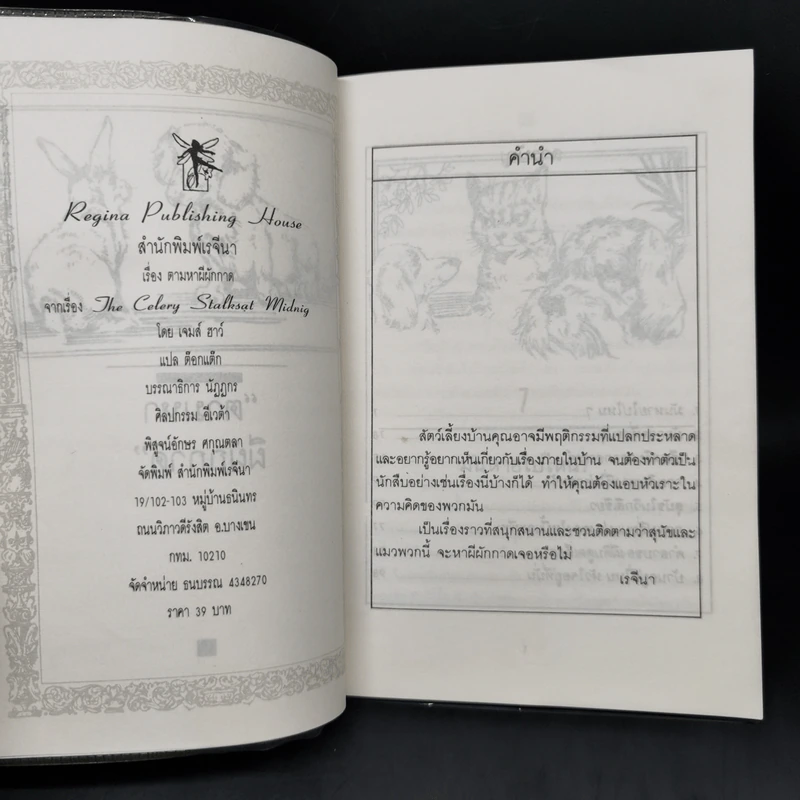 Regina Publishing House
สำนักพิมพ์เรจีนา
เรื่อง ตามหาผีผักกาด
จากเรื่อง The Celery Stalksat Midnig
โดย เจมส์ ฮาว์
แปล ต๊อกแต๊ก
บรรณาธิการ นัฏฐกร
ศิลปกรรม อีเวต้า
พิสูจน์อักษร ศกุณตลา
จัดพิมพ์ สำนักพิมพ์เรจีนา
19/102-103 หมู่บ้านธนินทร
ถนนวิภาวดีรังสิต อ.บางเขน
กทม. 10210
จัดจำหน่าย ธนบรรณ 4348270
ราคา 39 บาท
คำนำ
สัตว์เลี้ยงบ้านคุณอาจมีพฤติกรรมที่แปลกประหลาด
และอยากรู้อยากเห็นเกี่ยวกับเรื่องภายในบ้าน จนต้องทำตัวเป็น
นักสืบอย่างเช่นเรื่องนี้บ้างก็ได้ ทำให้คุณต้องแอบหัวเราะใน
ความคิดของพวกมัน
เป็นเรื่องราวที่สนุกสนานและชวนติดตามว่าสุนัขและ
แมวพวกนี้ จะหาผีผักกาดเจอหรือไม่
เรจีนา